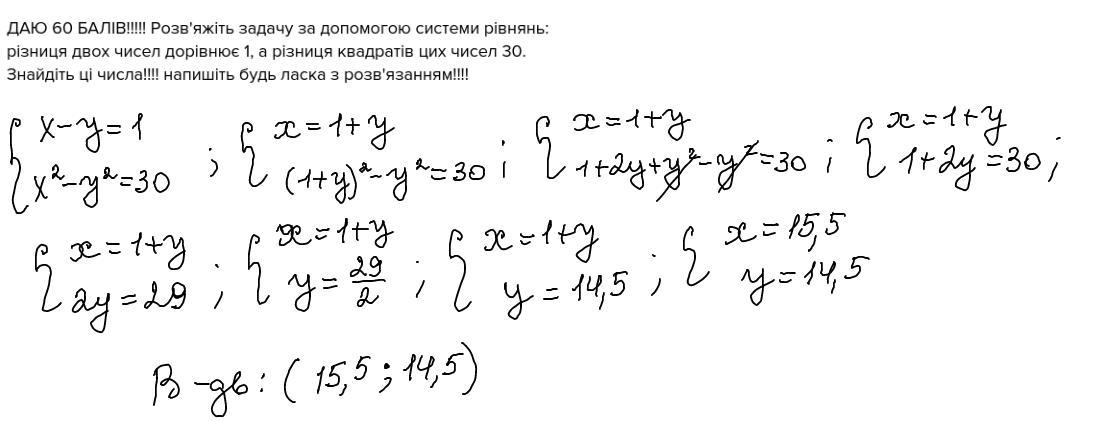 ДАЮ 60 БАЛІВ!!!!! Розв'яжіть задачу за допомогою системи рівнянь:
різниця двох чисел дорівнює 1, а різниця квадратів цих чисел 30.
Знайдіть ці числа!!!! напишіть будь ласка з розв'язанням!!!!
{ x-y=1 ; { x=1+y ; { x=1+y ; { x=1+y
x²-y²=30 (1+y)²-y²=30 1+2y+y²-y²=30 1+2y=30;
{ x=1+y ; { x=1+y ; { x=1+y ; { x=15,5
2y=29 y=29/2 y=14,5 y=14,5
В-дь: (15,5; 14,5)